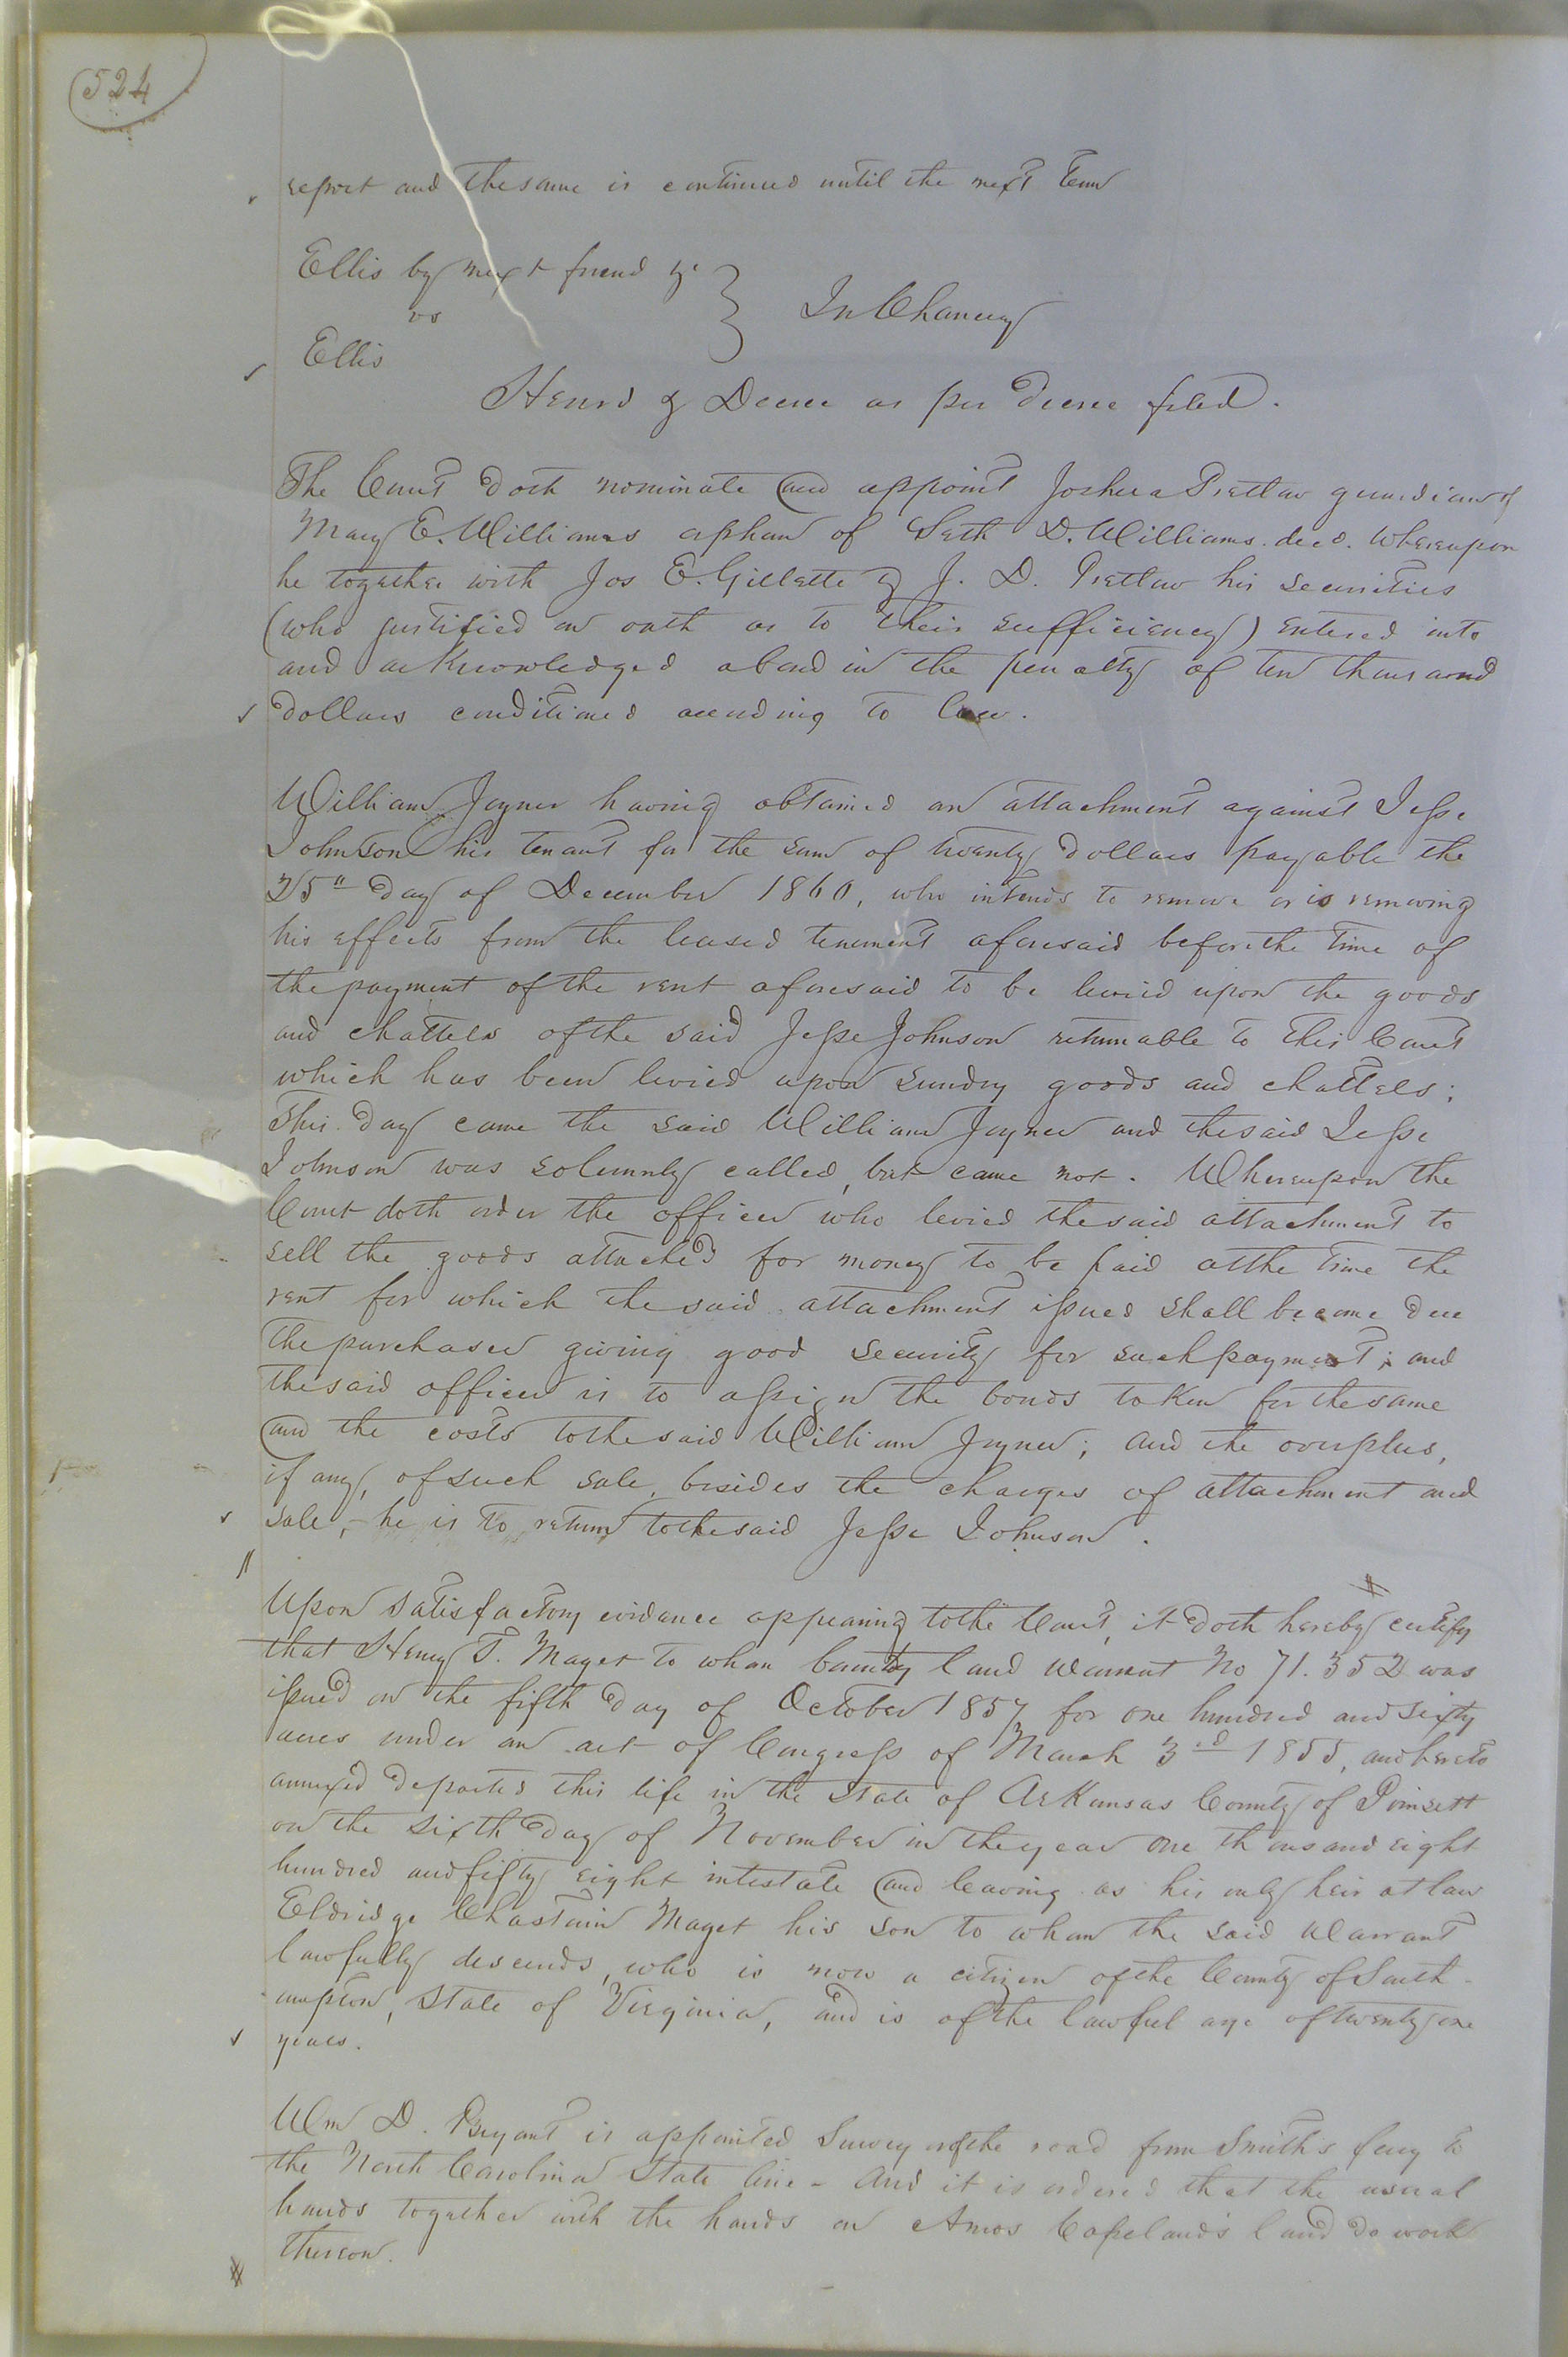 524
report and the same is continued until the next Term
Ellis by next friend &c
vs
In Chancery
Ellis
Heard & Decree as per decree filed.
The Court doth nominate and appoint Joshua Pretlow guardian of
Mary E. Williams orphan of Seth D. Williams decd. Whereupon
he together with Jos E. Gillette & J. D. Pretlow his securities
(who justified on oath as to their sufficiency) entered into
and acknowledged a bond in the penalty of ten thousand
dollars conditioned according to law.
William Joyner having obtained an attachment against Jesse
Johnson his tenant for the sum of twenty dollars payable the
25th day of December 1860, who intends to remove or is removing
his effects from the leased tenement aforesaid before the time of
the payment of the rent aforesaid to be levied upon the goods
and chattels of the said Jesse Johnson returnable to this Court
which has been levied upon sundry goods and chattels;
This day came the said William Joyner and the said Jesse
Johnson was solemnly called, but came not. Whereupon the
Court doth order the officer who levied the said attachment to
sell the goods attached for money to be paid at the time the
rent for which the said attachment issued shall become due
the purchaser giving good security for such payment; and
the said officer is to assign the bonds taken for the same
and the costs to the said William Joyner; and the overplus,
if any, of such sale, besides the charges of attachment and
sale, he is to return to the said Jesse Johnson.
Upon satisfactory evidence appearing to the Court, it doth hereby certify
that Henry T. Maget to whom bounty land warrant No 71.352 was
issued on the fifth day of October 1857 for one hundred and sixty
acres under an act of Congress of March 3rd 1855, and hereto
annexed departed this life in the State of Arkansas County of Poinsett
on the sixth day of November in the year one thousand eight
hundred and fifty eight intestate and leaving as his only heir at law
Eldridge Chastain Maget his son to whom the said Warrant
lawfully descends, who is now a citizen of the County of South-
ampton, State of Virginia, and is of the lawful age of twenty one
years.
Wm D. Bryant is appointed Surveyor of the road from Smith's ferry to
the North Carolina State line - And it is ordered that the usual
hands together with the hands on Amos Copeland's land do work
thereon.